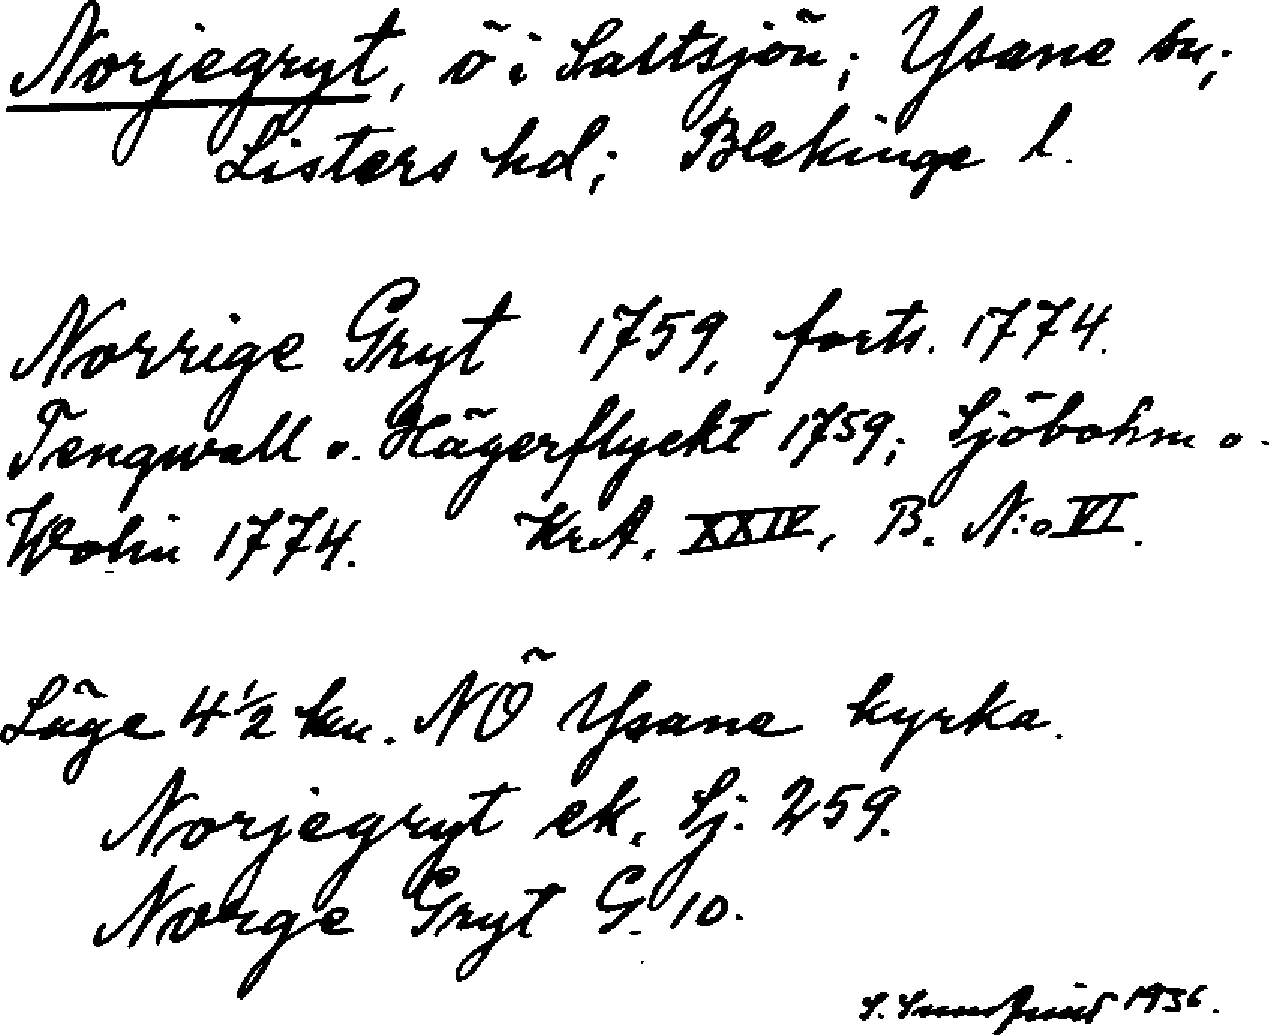 Norjegryt, ö i Saltsjön; Ysane sn;
Listers hd; Blekinge l.
Norrige Gryt 1759, forts. 1774.
Tengwall o. Hägerflyckt 1759; Sjöbohm o.
Wolin 1774. Kr.A. XXIV, B. N:o VI.
Läge 4 ½ km. NÖ Ysane kyrka.
Norjegryt ek. Sj. 259.
Norge Gryt G. 10.
S. 1936.